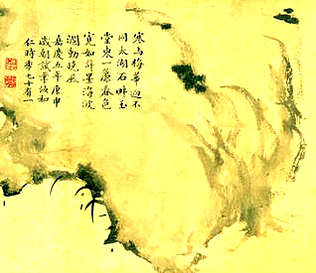 寒与梅華迥不
同太湖石畔玉
堂東一簾春色
寛如許墨海波
瀾動晚風
嘉慶五年庚申
歲朝試筆和
仁時年七十有一